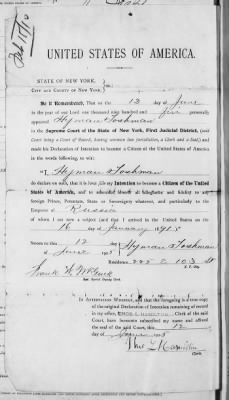 UNITED STATES OF AMERICA.
STATE OF NEW YORK,
CITY AND COUNTY OF NEW YORK,
Be it Remembered, That on the 12 day of June
in the year of our Lord one thousand nine hundred and five personally
appeared Hyman Toshman
in the Supreme Court of the State of New York, First Judicial District, (said
Court being a Court of Record, having common law jurisdiction, a Clerk and a Seal) and
made his Declaration of Intention to become a Citizen of the United States of America
in the words following, to wit:
"I, Hyman Toshman
do declare on oath, that it is bona fide my Intention to become a Citizen of the United
States of America, and to renounce forever all allegiance and fidelity to any
foreign Prince, Potentate, State or Sovereignty whatever, and particularly to the
Emperor of Russia
of whom I am now a subject (and that I arrived in the United States on the
16 day of January
Sworn to this 12
day of June 1905 Hyman Toshman
Residence 225 E 103 St
N. Y. City
Frank
Special Deputy Clerk.
IN ATTESTATION WHEREOF, and that the foregoing is a true copy
of the original Declaration of Intention remaining of record
in my office, I, THOS. L. HAMILTON, Clerk of the said
Court, have hereunto subscribed my name and affixed
the seal of the said Court, this 12
day of June 1905
Thos. L. Hamilton
Clerk.